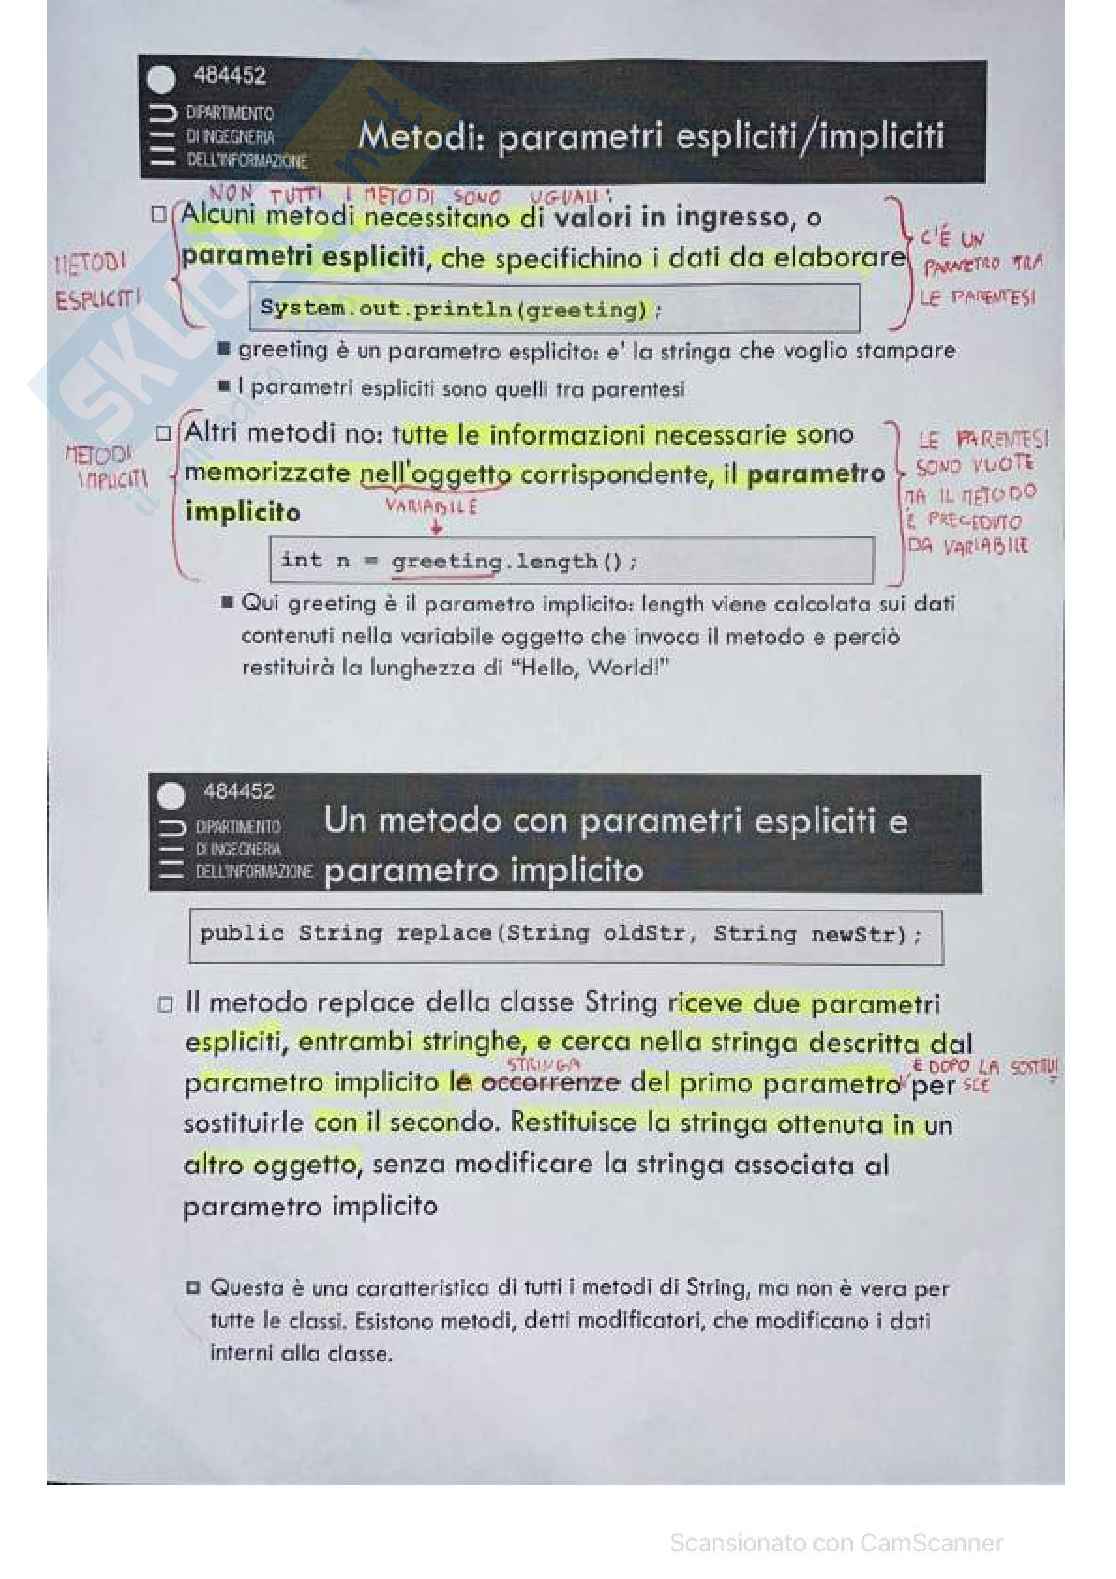 484452
DIPARTIMENTO
DI INGEGNERIA
DELL'INFORMAZIONE
Metodi: parametri espliciti/impliciti
NON TUTTI I METODI SONO UGUALI:
Alcuni metodi necessitano di valori in ingresso, o
parametri espliciti, che specifichino i dati da elaborare
METODI
ESPLICITI
C'É UN
PARAMETRO TRA
LE PARENTESI
System.out.println(greeting);
greeting è un parametro esplicito: e' la stringa che voglio stampare
I parametri espliciti sono quelli tra parentesi
Altri metodi no: tutte le informazioni necessarie sono
memorizzate nell'oggetto corrispondente, il parametro
implicito
METODI
IMPLICITI
VARIABILE
LE PARENTESI
SONO VUOTE
MA IL METODO
È PRECEDUTO
DA VARIABILE
int n = greeting.length();
Qui greeting è il parametro implicito: length viene calcolata sui dati
contenuti nella variabile oggetto che invoca il metodo e perciò
restituirà la lunghezza di “Hello, World!”
484452
DIPARTIMENTO
DI INGEGNERIA
DELL'INFORMAZIONE
Un metodo con parametri espliciti e
parametro implicito
public String replace(String oldStr, String newStr);
Il metodo replace della classe String riceve due parametri
espliciti, entrambi stringhe, e cerca nella stringa descritta dal
STRINGA
E DOPO LA SOSTITUI
parametro implicito le occorrenze del primo parametro per
SCE
sostituirle con il secondo. Restituisce la stringa ottenuta in un
altro oggetto, senza modificare la stringa associata al
parametro implicito
Questa è una caratteristica di tutti i metodi di String, ma non è vera per
tutte le classi. Esistono metodi, detti modificatori, che modificano i dati
interni alla classe.
Scansionato con CamScanner